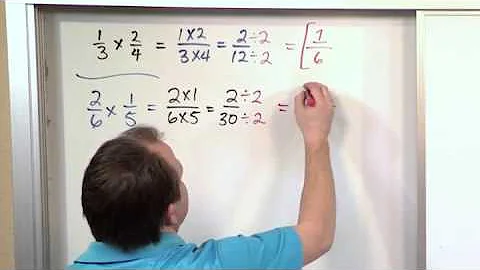 1/3 × 2/4 = 1×2/3×4 = 2÷2/12÷2 = [1/6
2/6 × 1/5 = 2×1/6×5 = 2÷2/30÷2 =